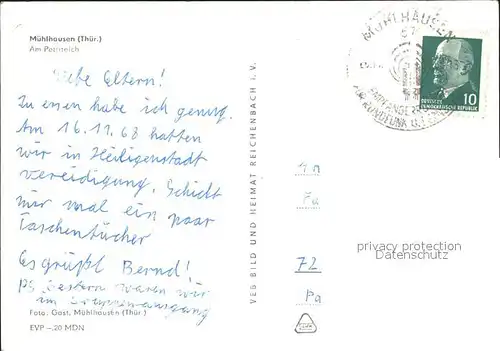 Mühlhausen (Thür.)
Am Popperöder Teich
Liebe Eltern!
Zu essen habe ich genug.
Am 16.11.68 hatten
wir in Heiligenstadt
Vereidigung. Schickt
mir mal ein paar
Taschentücher
Es grüßt Bernd!
PS Gestern waren wir
im Gruppenausgang
Foto: Gast, Mühlhausen (Thür.)
EVP -.20 MDN
VEB BILD UND HEIMAT REICHENBACH I. V.
MÜHLHAUSEN
57
DEUTSCHE
DEMOKRATISCHE REPUBLIK
10
Fa
72
Pa
privacy protection
Datenschutz